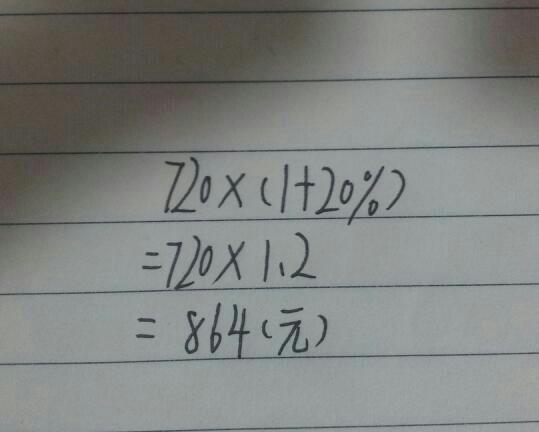 720×(1+20%)
=720×1.2
=864(元)